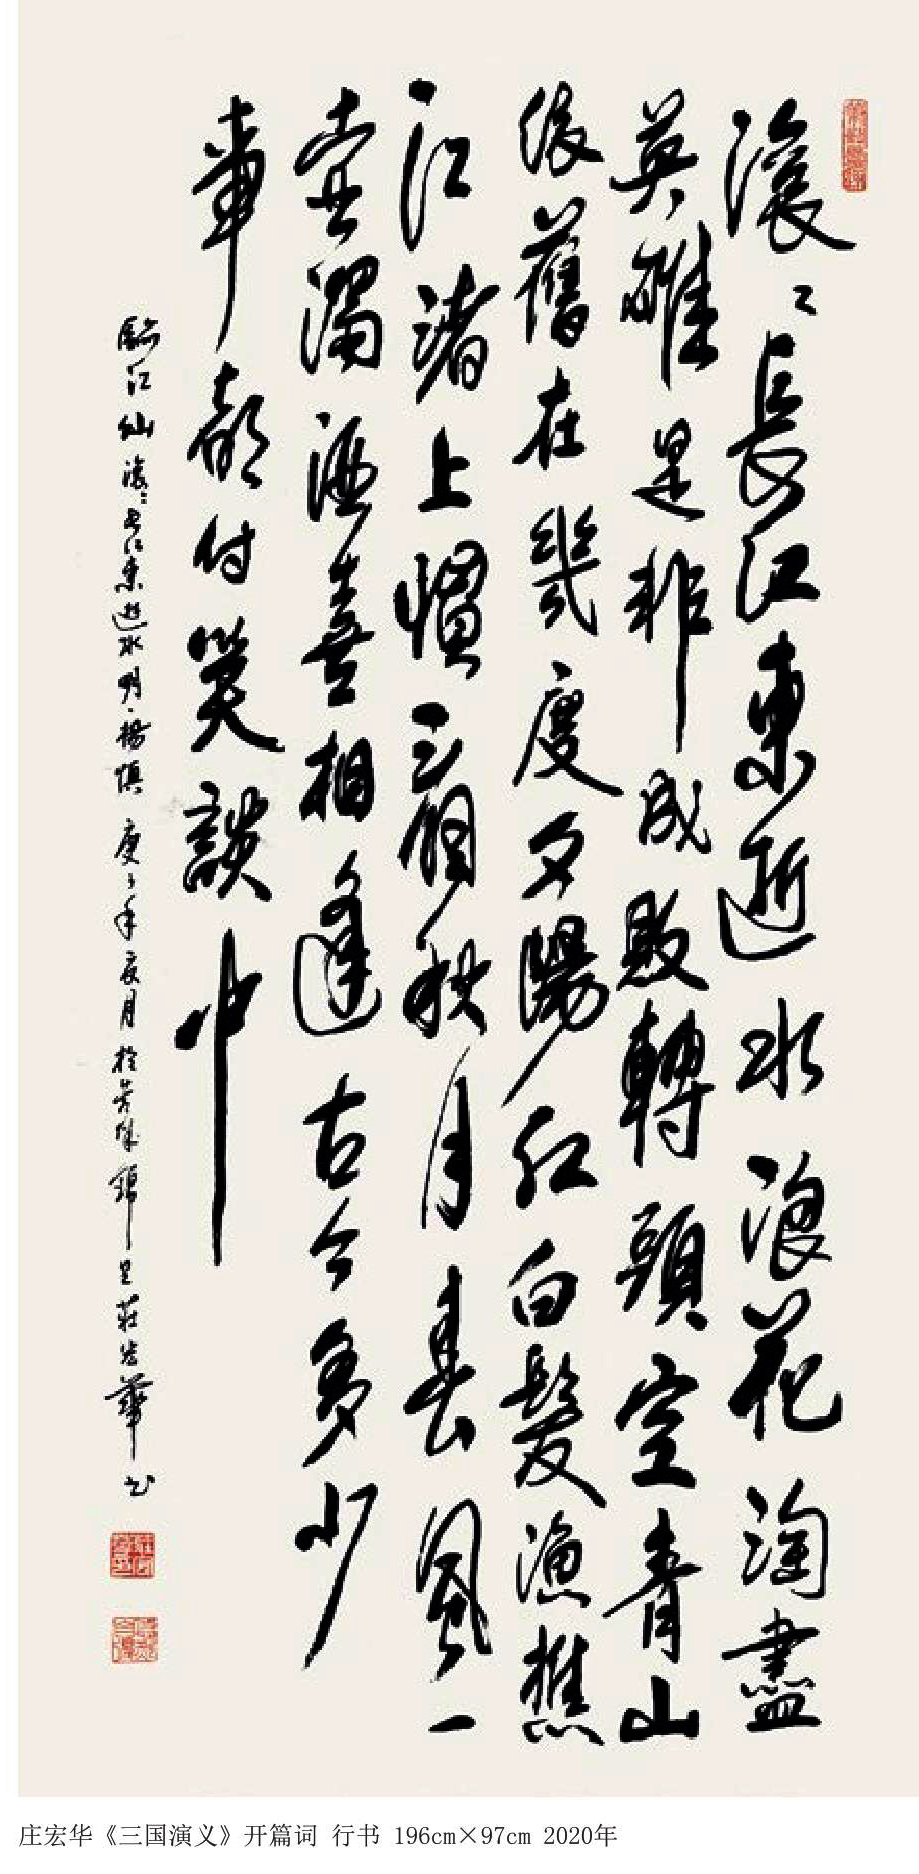 滚〻長江東逝水浪花淘盡
英雄是非成敗轉頭空青山
依舊在幾度夕陽紅白髮漁樵
江渚上慣看秋月春風一
壺濁酒喜相逢古今多少
事都付笑談中
臨江仙滚〻長江東逝水明·楊慎庚子年夏月於芳城錦里莊宏華书
庄宏华《三国演义》开篇词 行书 196cm×97cm 2020年